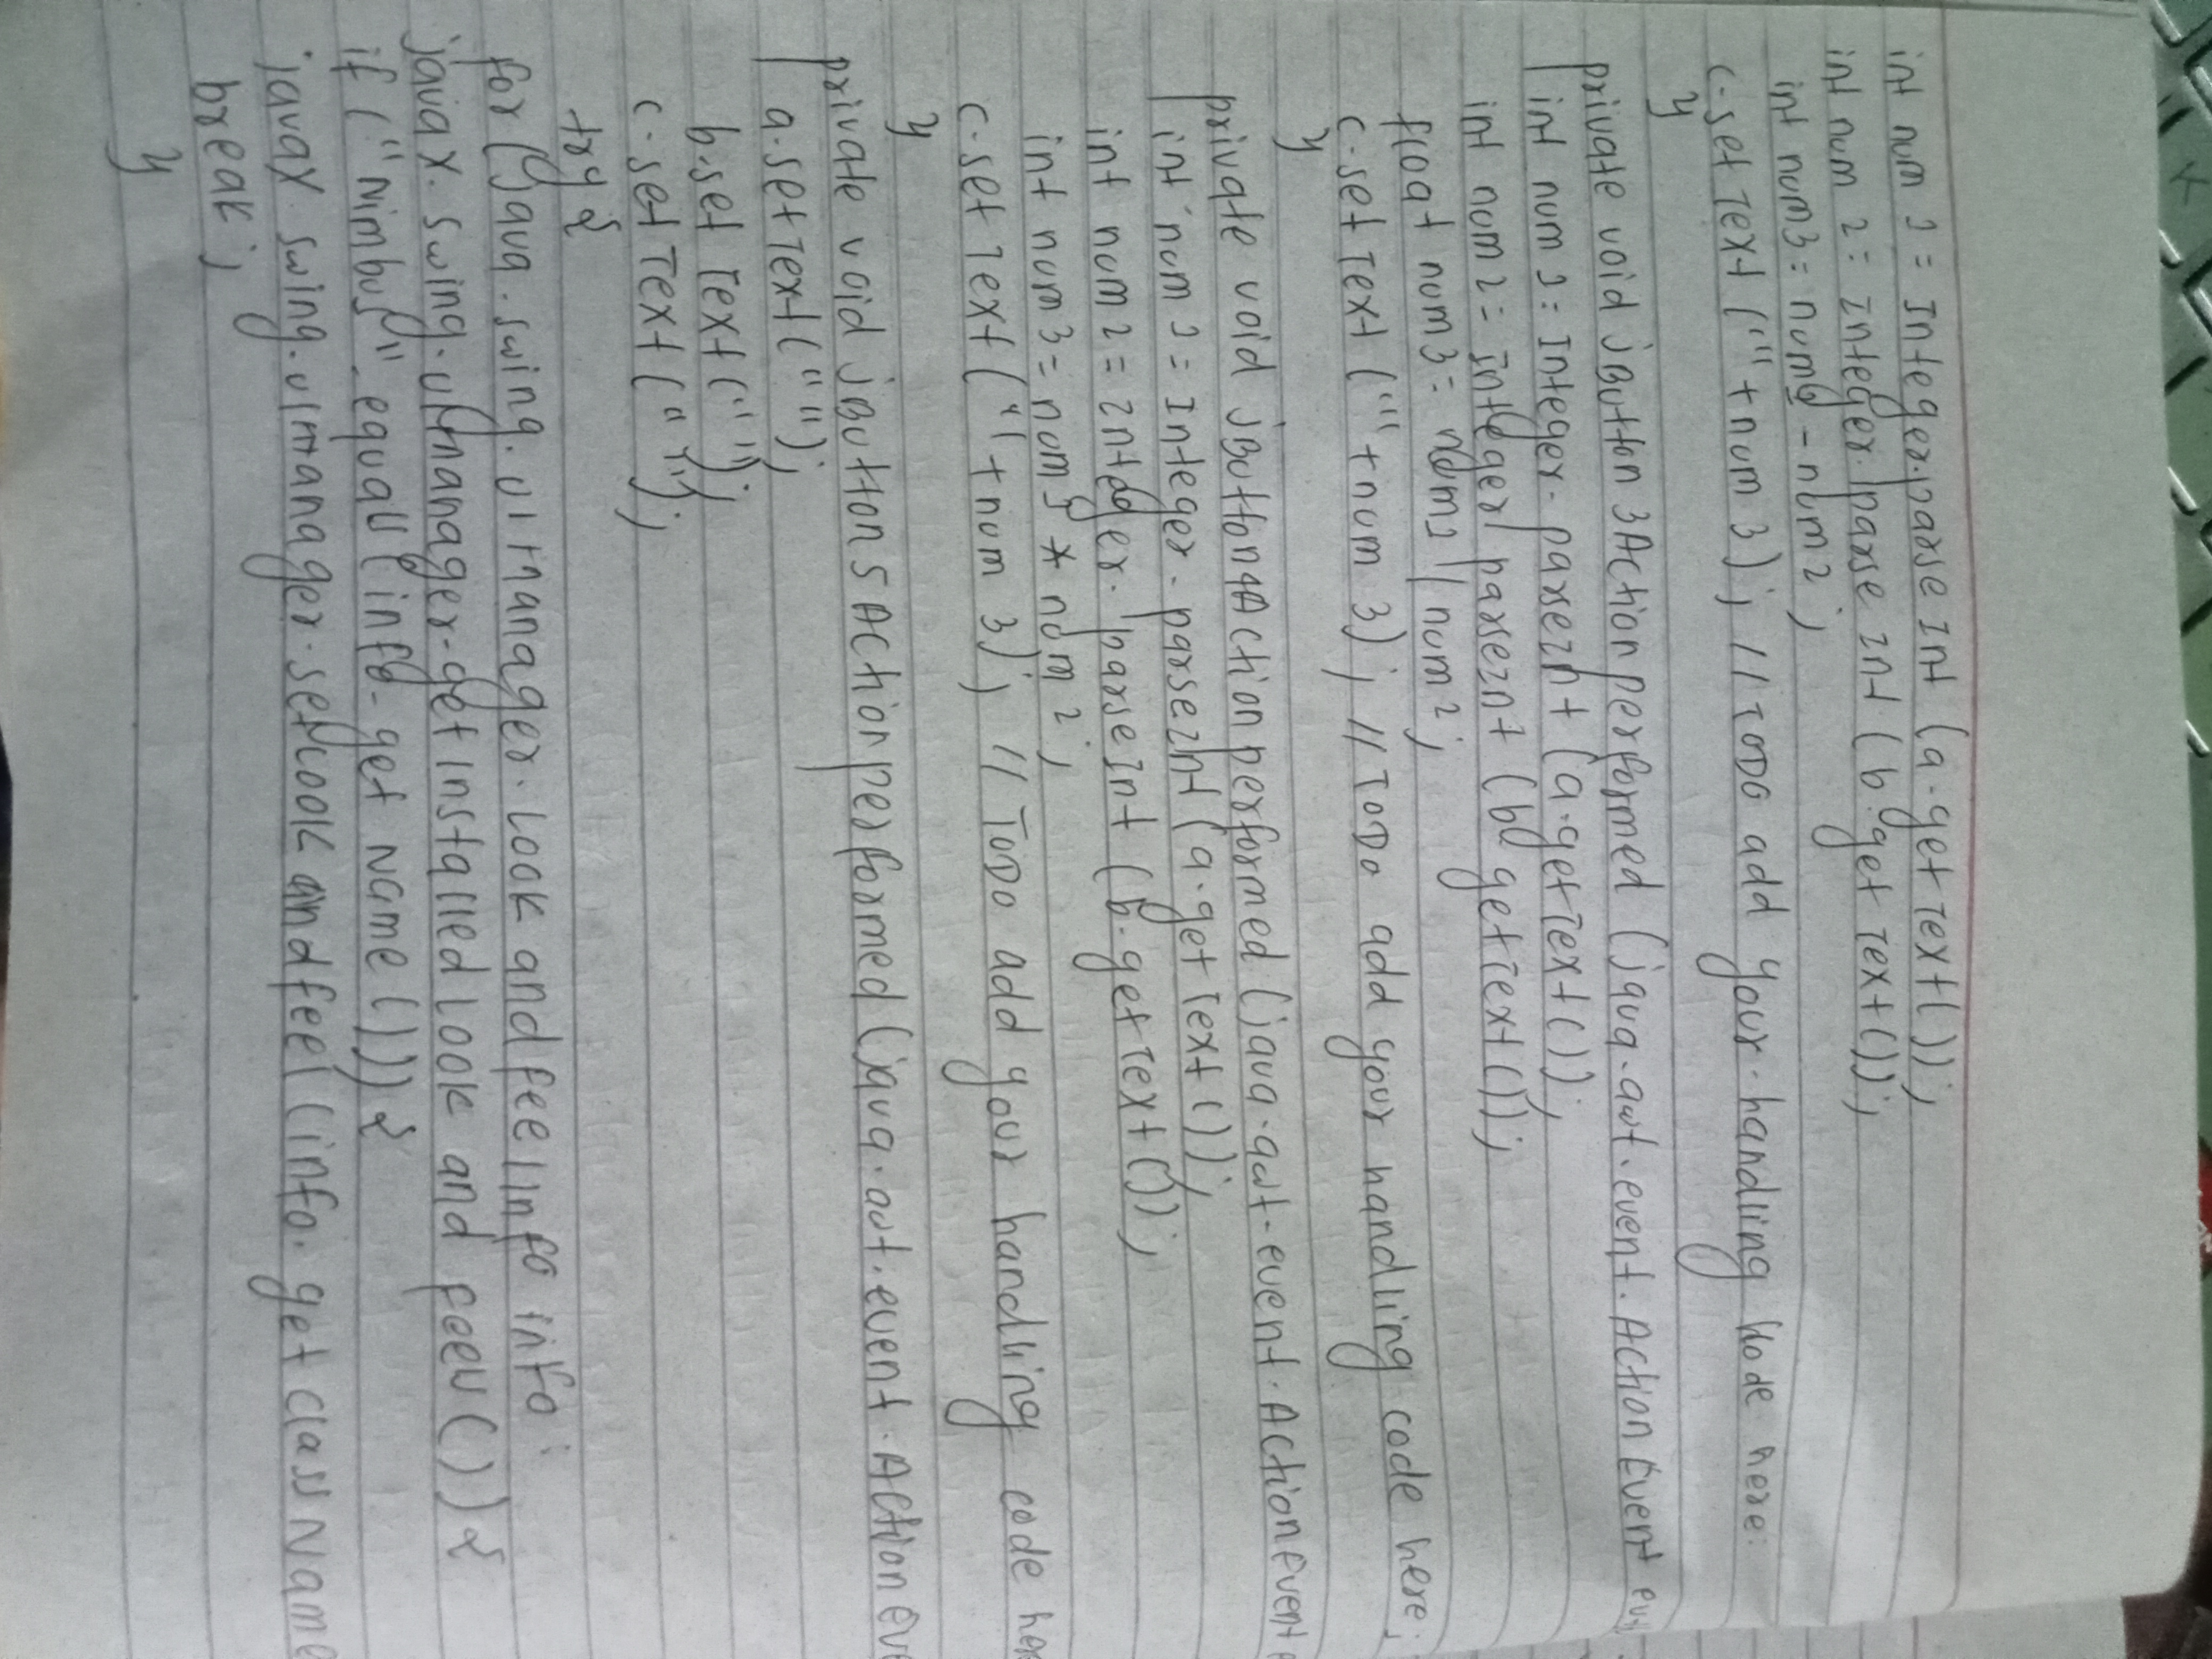 int num 1 = Integer.parse Int (a.get Text());
int num 2 = Integer.parse Int (b.get Text());
int num3 = num1 - num2;
c.set Text (""+num 3); // TODO add your handling code here:
}
private void jButton 3Action performed (java.awt.event.Action Event
int num 1 = Integer.parseInt (a.getText());
int num2 = Integer parseInt (b getText());
float num3 = num1 / num2;
c.set Text (""+num 3); // TODO add your handling code here:
}
private void jButton4Action performed (java.awt.event.ActionEvent
int num 1 = Integer.parseInt (a.get Text());
int num 2 = Integer.parseInt (b.getText());
int num3 = num1 * num2;
c.set Text (""+num 3); // TODO add your handling code
}
private void jButton 5 Action performed (java.awt.event.Action
a.set Text ("");
b.set Text ("");
c.set Text ("");
try {
for (Java.swing.UI Manager.Look and feel Info info:
javax.swing.UIManager.get Installed Look and feels ()) {
if ("Nimbus".equals (info.get Name ())) {
javax.swing.UIManager.setLook and feel (info.get class Name
break;
}